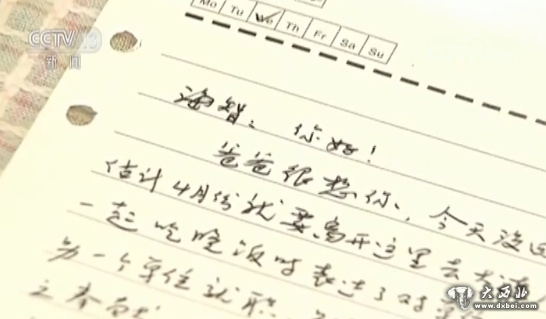 CCTV 13
新闻
Mo Tu We Th Fr Sa Su
海智：你好！
爸爸很想你，今天没
估计4月份就要离开这里去
一起吃晚饭时表达了对
另一个单位就职
大西北
www.dxbei.com